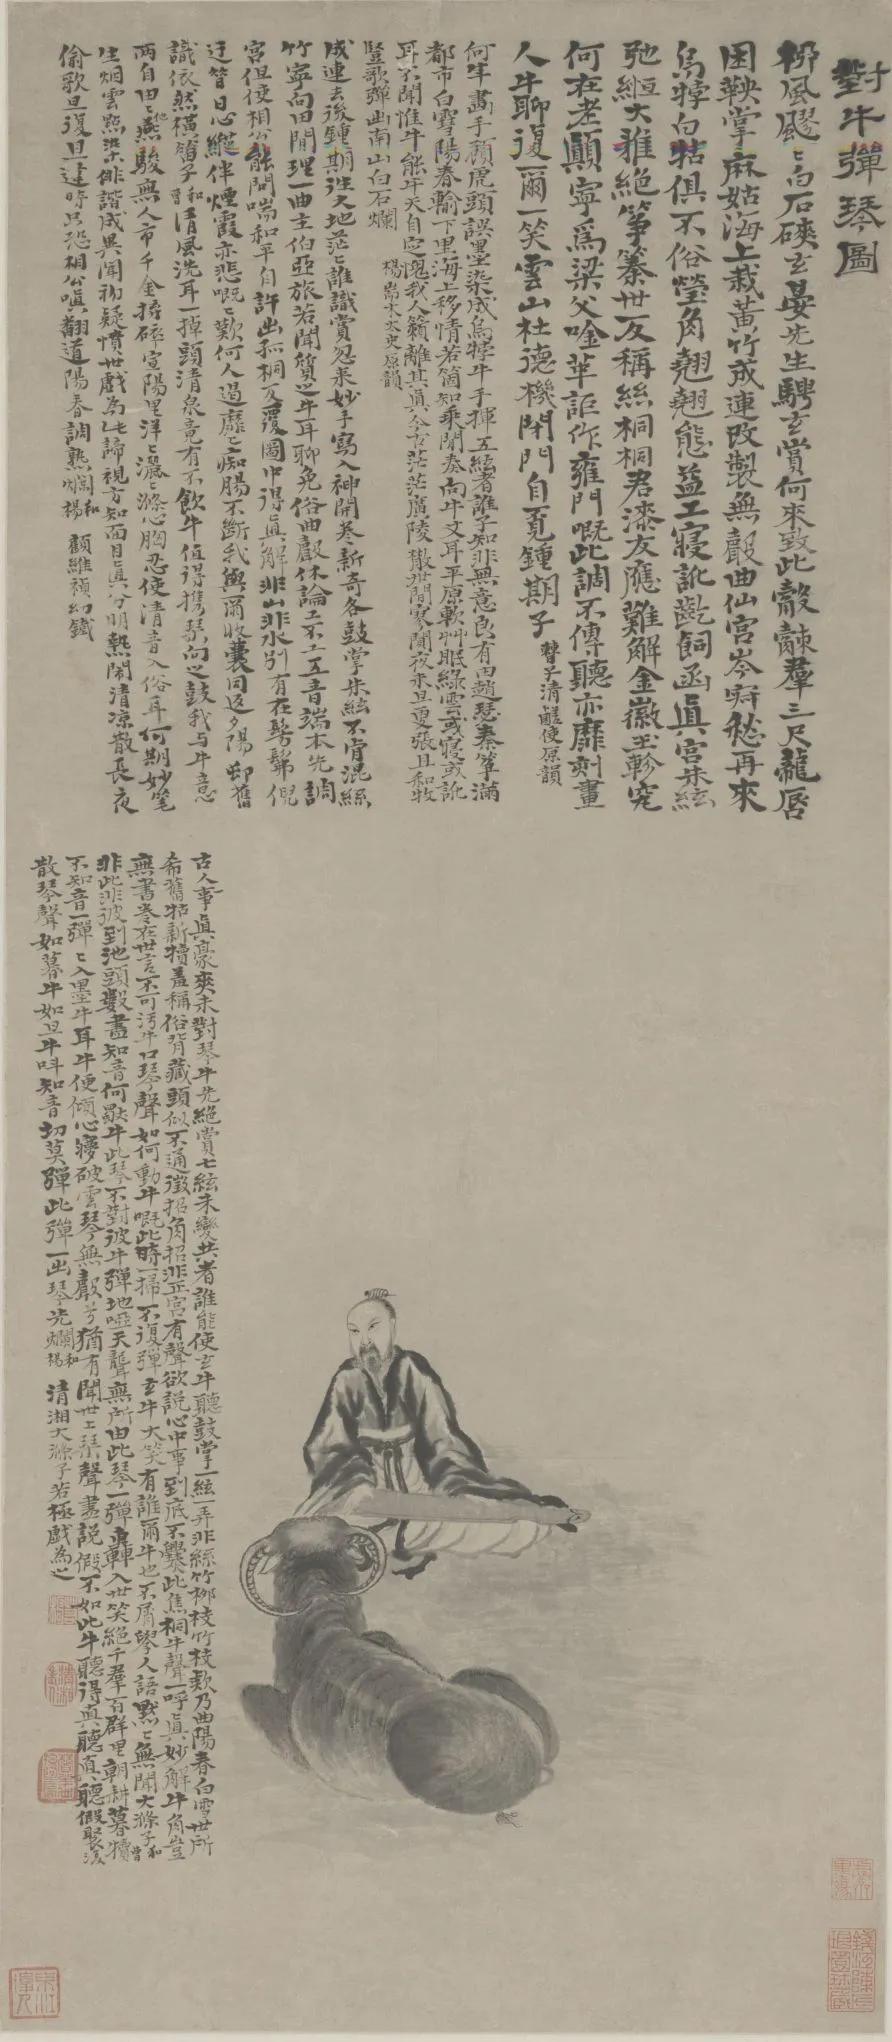 對牛彈琴圖
柳風飂〻白石磢玄晏先生騁玄賞何來致此觳觫羣三尺龍唇
困鞅掌麻姑海上栽黃竹成連改製無聲曲仙宮岑寂愁再來
烏犉白牯俱不俗瑩角翹翹態益工寢訛齝飼函真宮朱絃
弛縆大雅絕箏纂世反稱絲桐桐君漆友應難解金徽玉軫究
何在老顛寧為梁父唫莘詎作雍門嘅此調不傳聽亦靡刻畫
人牛聊復爾一笑雲山杜德機閉門自覓鍾期子 曹子清鹺使原韻
何年畫手顧虎頭誤墨染成烏犉牛手揮五絃者誰子知非無意良有由趙瑟秦箏滿
都市白雪陽春輸下里海上移情若箇知乘閒奏向牛文耳平原軟草眠綠雲或寢或訛
耳不聞惟牛能牛天自定愧我人籟離其真今古茫茫廣陵散世間寥聞夜未旦更張且和牧
豎歌彈出南山白石爛 楊耑木太史原韻
成連去後鍾期往大地茫〻誰識賞忽來妙手寫入神開卷新奇各鼓掌朱絃不肯混絲
竹寧向田間理一曲主伯亞旅若聞賀之牛耳聊免俗曲聲休論工不工五音端本先調
宮但使相公能問喘和平自許出孤桐反覆圖中得真解非山非水別有在髣髴倪
迂昔日心縱伴煙霞亦悲嘅〻歎何人過靡〻痴腸不斷我與爾收囊同返夕陽邨舊
識依然橫笛子 和曹
清風洗耳一掉頭清泉竟有不飲牛值得攜琴向之鼓我与牛意
兩自由〻他燕駿無人市千金摔碎宣陽里洋〻灑〻滌心胸忍使清音入俗耳何期妙笔
生烟雲點染俳諧成異聞初疑憤世戲為此諦視方知面目真分明熱鬧清涼散長夜
偷歌旦復旦達時只恐相公嗔翻道陽春調熟爛 和楊 顧維禎幻鐵
古人事真豪爽未對琴牛先絕賞七絃未變共者誰能使玄牛聽鼓掌一絃一弄非絲竹柳枝竹枝欸乃曲陽春白雪世所
希舊牯新犢羞稱俗背藏頭似不通徵招角招非正宮有聲欲說心中事到底不爨此焦桐牛聲一呼真妙解牛角豈
無書卷在世言不可污牛口琴聲如何動牛嘅此時一掃不復彈玄牛大笑有誰爾牛也不屑學人語默〻無聞大滌子 和曹
非此非彼到池頭數盡知音何獨牛此琴不對彼牛彈地啞天聾無所由此琴一彈轟入世笑絕千羣百群里朝耕暮犢
不知音一彈〻入墨牛耳牛便傾心寐破雲琴無聲兮猶有聞世上琴聲盡說假不如此牛聽得真聽真聽假聚復
散琴聲如暮牛如旦牛叫知音切莫彈此彈一出琴先爛 和楊 清湘大滌子若極戲為之